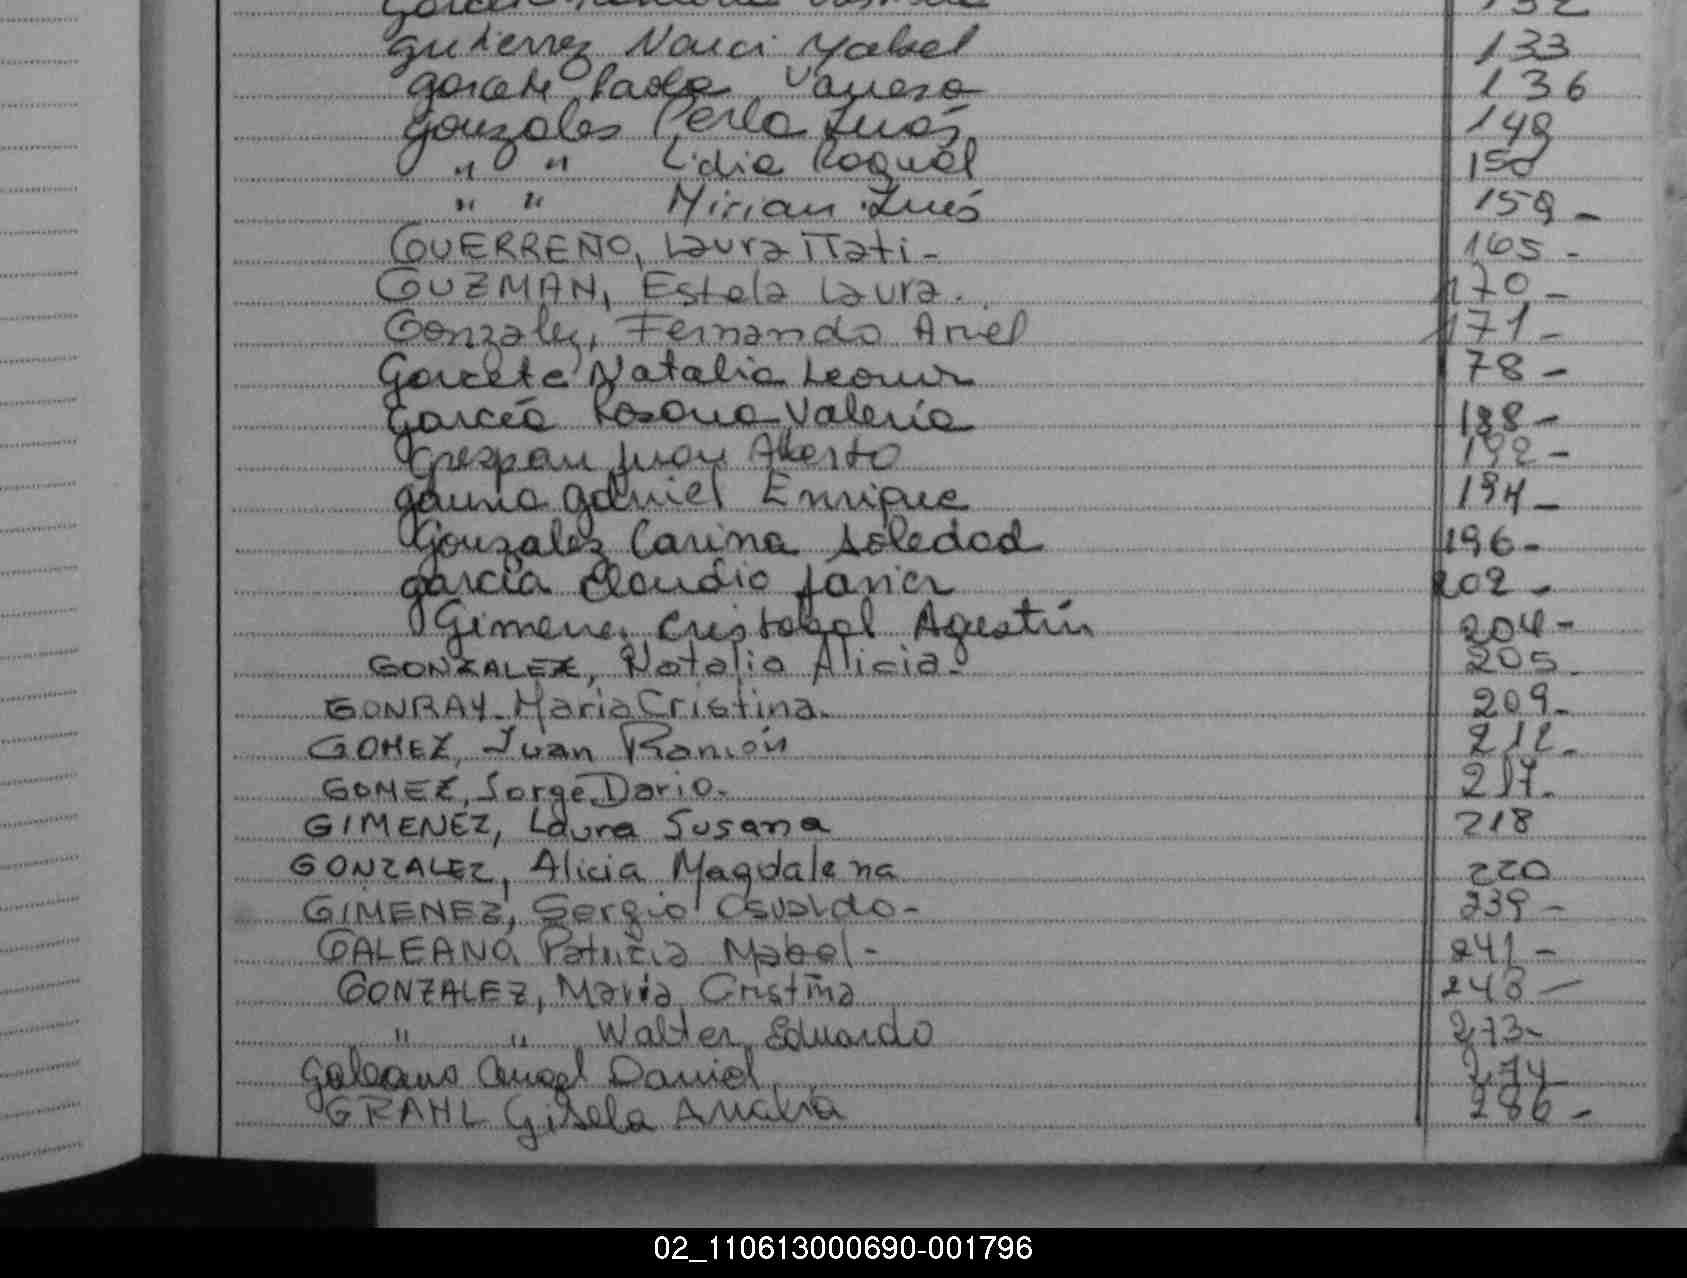 132
Gutierrez Nanci Mabel 133
Garcete Paola Vanesa 136
Gonzales Perla Inés 149
" " Lidia Raquel 150
" " Mirian Inés 159 -
GUERREÑO, Laura ITati - 165 -
GUZMAN, Estela Laura. 170 -
Gonzalez, Fernando Ariel 171 -
Garcete Natalia Leonor 78 -
García Rosana Valeria 188 -
Grespan Juan Alberto 192 -
Gauna Gabriel Enrique 194 -
Gonzalez Carina Soledad 196 -
García Claudio Javier 202 -
Gimenez Cristobal Agustín 204 -
GONZALEZ, Natalia Alicia - 205
GONRAY - Maria Cristina - 209 -
GOMEZ, Juan Ramón 212 -
GOMEZ, Jorge Dario - 217 -
GIMENEZ, Laura Susana 218
GONZALEZ, Alicia Magdalena 220
GIMENEZ, Sergio Osvaldo - 239 -
GALEANO, Patricia Mabel - 241 -
GONZALEZ, Maria Cristina 243 -
" " Walter Eduardo 273 -
Galeano Angel Daniel 274
GRAHL Gisela Analia 286 -
02_110613000690-001796